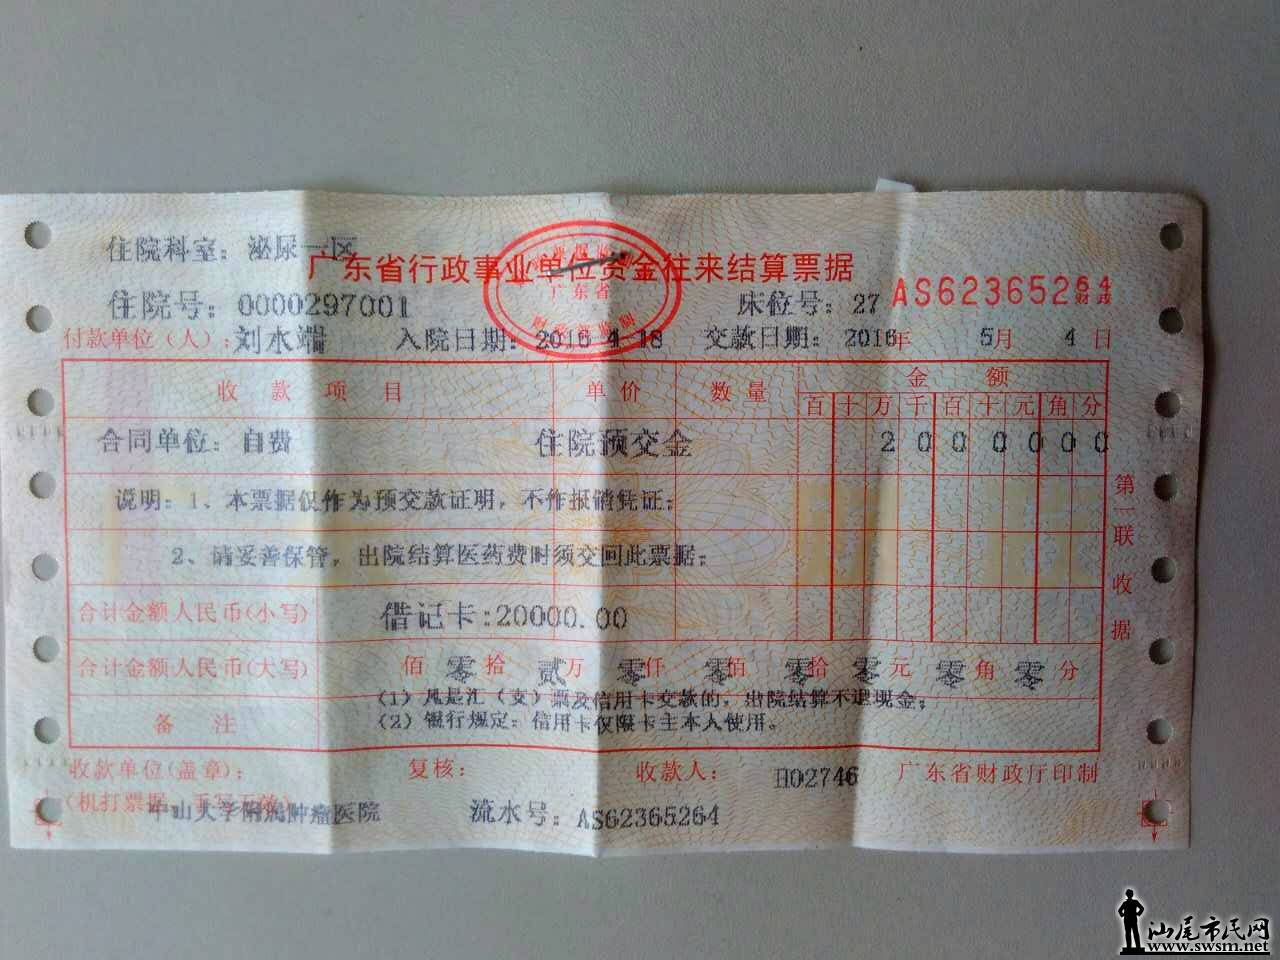 住院科室：泌尿一区
广东省行政事业单位资金往来结算票据
广东省
AS62365264
财政
住院号：0000297001 床位号：27
付款单位（人）：刘水端 入院日期：2016-4-18 交款日期：2016年 5月 4日
收款项目 单价 数量 金额
百十万千百十元角分
合同单位：自费 住院预交金 2000000
说明：1、本票据仅作为预交款证明，不作报销凭证；
2、请妥善保管，出院结算医药费时须交回此票据；
合计金额人民币(小写) 借记卡:20000.00
合计金额人民币(大写) 佰零拾贰万零仟零佰零拾零元零角零分
备注 (1) 凡是汇（支）票及信用卡交款的，出院结算不退现金；
(2) 银行规定：信用卡仅限卡主本人使用。
第一联收据
收款单位(盖章)： 复核： 收款人： H02746 广东省财政厅印制
(机打票据，手写无效)
中山大学附属肿瘤医院 流水号：AS62365264
汕尾市民网
www.swsm.net